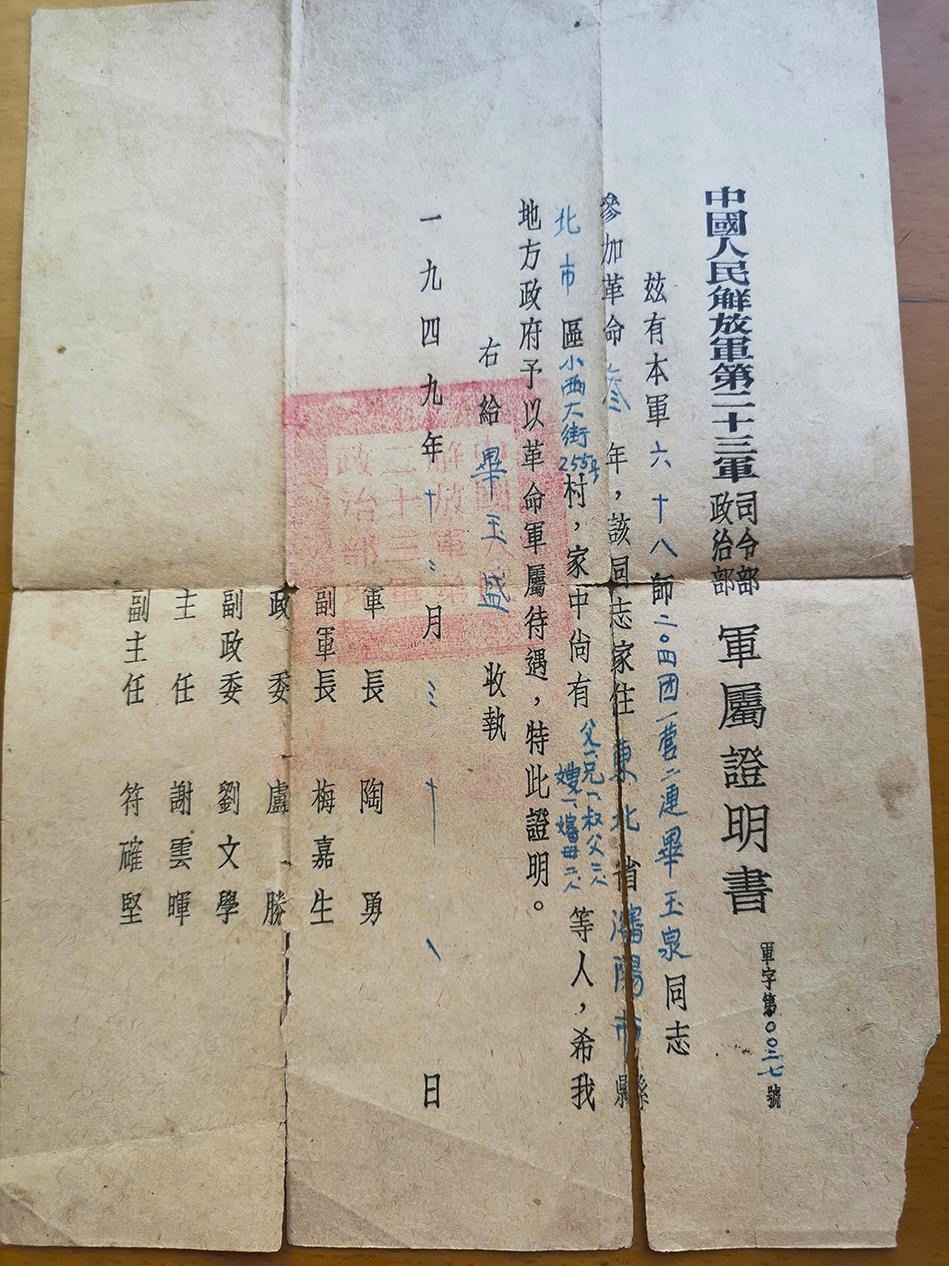 中國人民解放軍第二十三軍司令部政治部 軍屬證明書
軍字第00二七號
兹有本軍六十八師二〇四团一营二連畢玉泉同志
參加革命叁年，該同志家住東北省瀋陽市縣
北市區小西大街255号村，家中尙有父一兄一叔父三人嫂一嬸母二人等人，希我
地方政府予以革命軍屬待遇，特此證明。
右給畢玉盛收執
一九四九年十二月三十一日
軍長 陶勇
副軍長 梅嘉生
政委 盧勝
副政委 劉文學
主任 謝雲暉
副主任 符確堅